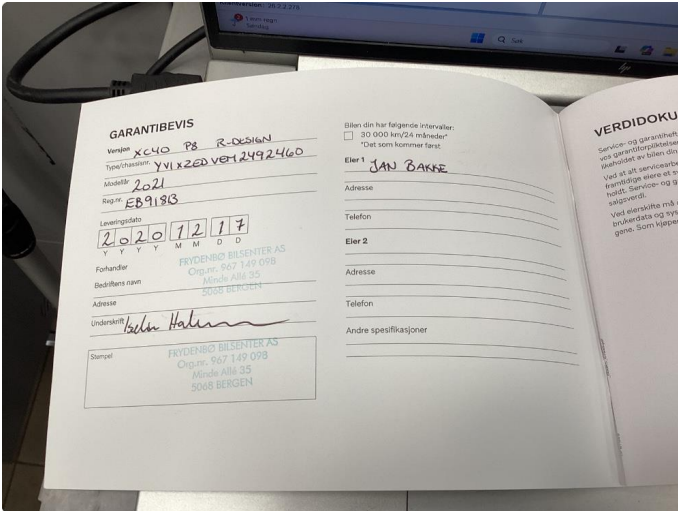 GARANTIBEVIS
Versjon XC40 P8 R-DESIGN
Type/chassisnr. YV1XZEDVEM2492460
Modellår 2021
Reg.nr. EB91813
Leveringsdato
2 0 2 0 1 2 1 7
Y Y Y Y M M D D
Forhandler
Bedriftens navn
FRYDENBØ BILSENTER AS
Org.nr. 967 149 098
Minde Allé 35
5068 BERGEN
Adresse
Underskrift
Stempel
FRYDENBØ BILSENTER AS
Org.nr. 967 149 098
Minde Allé 35
5068 BERGEN
Bilen din har følgende intervaller:
30 000 km/24 måneder*
*Det som kommer først
Eier 1 JAN BAKKE
Adresse
Telefon
Eier 2
Adresse
Telefon
Andre spesifikasjoner
VERDIDOKU
Service- og garantiheft
vos garantiforpliktelser
likeholdet av bilen din
Ved at alt servicearbe
framtidige eiere et s
holdt. Service- og g
salgsverdi.
Ved eierskifte må
brukerdata og sys
gene. Som kjøpe
1 mm regn
Søndag
Søk
hp